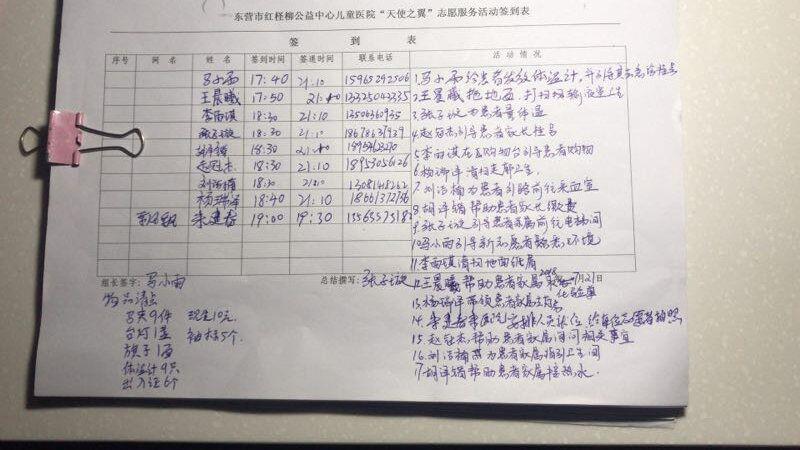 东营市红柽柳公益中心儿童医院“天使之翼”志愿服务活动签到表
签 到 表
序号 网名 姓名 签到时间 签退时间 联系电话 活动情况
马小雨 17:40 21:10 15965292506
王晨曦 17:50 21:10 13325042335
李雨镇 18:30 21:10 13506360935
张子璇 18:30 21:10 18678639929
18:30 21:10
赵冠杰 18:30 21:10 18953056126
刘语楠 18:30 21:10 13081418262
杨瑞泽 18:40 21:10 18661372756
朱建春 19:00 19:30
1.马小雨给患者发放体温计,并引导其去急诊挂号
2.王晨曦拖地面,打扫
3.张子璇为患者量体温
4.赵冠杰引导患者家长挂号
5.李雨镇在购物台引导患者购物
6.杨瑞泽清扫走廊卫生
7.刘语楠为患者引路前往采血室
8.胡译镨帮助患者家长缴费
9.张子璇引导患者家属前往电梯间
10.马小雨引导新志愿者熟悉环境
11.李雨镇清扫地面纸屑
12.王晨曦帮助患者家属取化验单
13.杨瑞泽带领患者家属
14.朱建春 给单位志愿者拍照
15.赵冠杰帮助患者家属询问相关事宜
16.刘语楠为患者家属指引卫生间
17.胡译镨帮助患者家属接热水.
组长签字:马小雨 总结撰写:张子璇 2018 月21日
物品清点
马夹9件 现金10元.
台灯1盏 袖标5个.
旗子1面
体温计9只
出入证6个